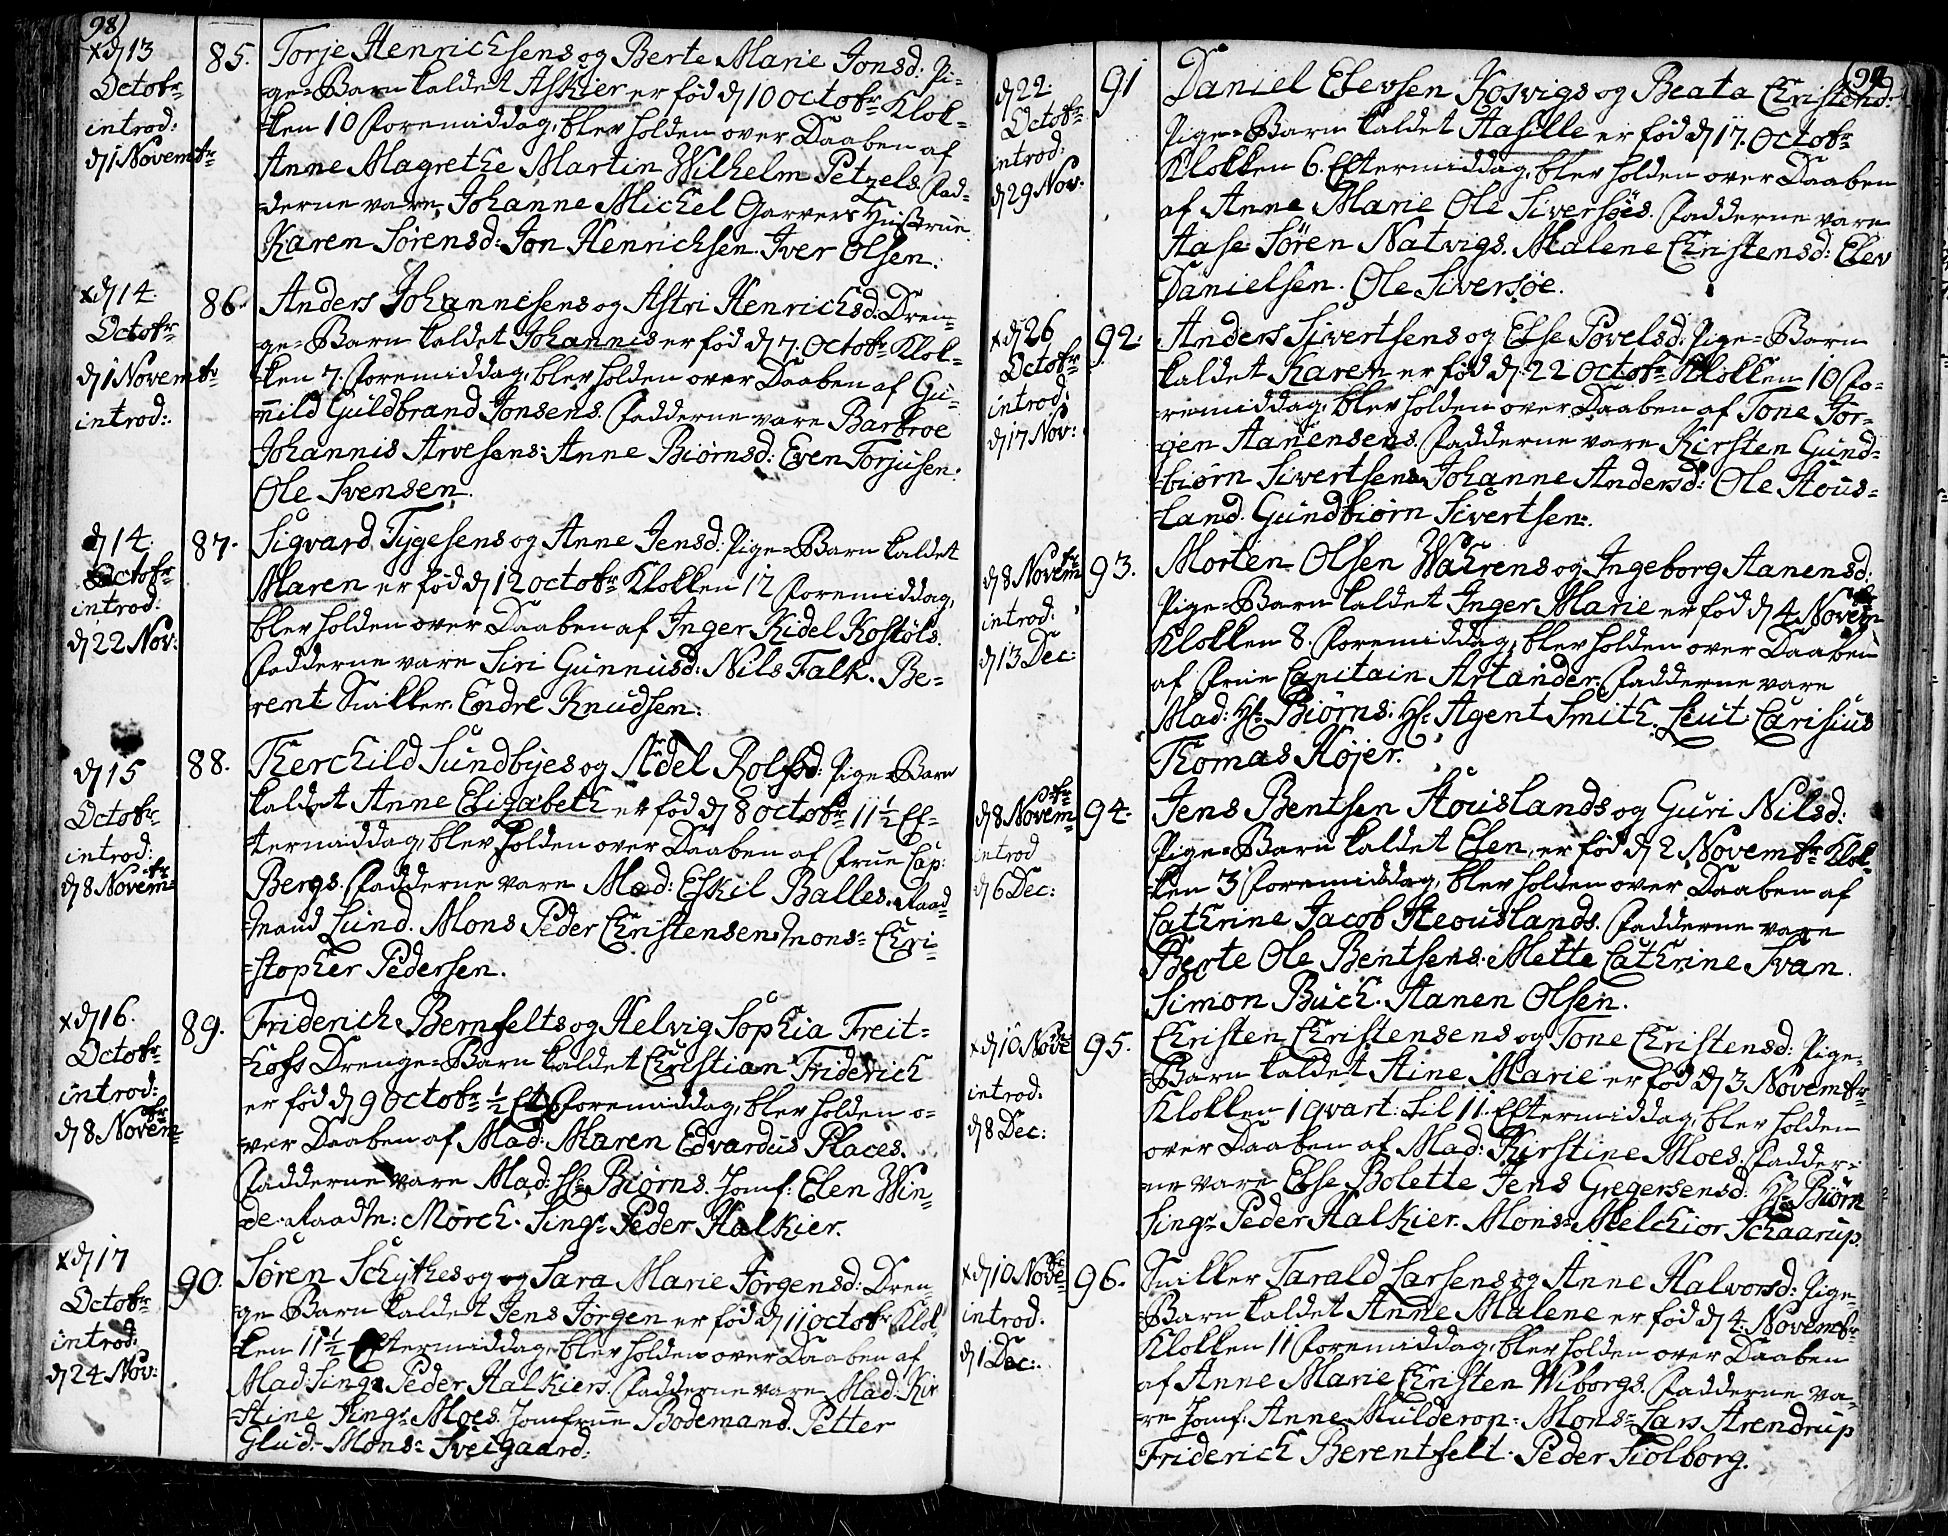 98)
x d 13
Octobr
introd:
d 1 Novembr
85. Torje Henrichsens og Berte Marie Jonsd: Pi-
ge-Barn kaldet Askier er fød d 10 octobr Klok-
ken 10 Foremiddag, blev holden over Daaben af
Anne Magrethe Martin Wilhelm Petzels. Fad-
derne vare, Johanne Michel Garvers Hustrue.
Karen Sørensd: Jon Henrichsen. Iver Olsen.
x d 14.
Octobr
d 1 Novembr
introd:
86. Anders Johannesens og Astri Henrichsd: Dren-
ge-Barn kaldet Johannis er fød d 7. Octobr Klok-
ken 7. Foremiddag, blev holden over Daaben af Gu-
nild Guldbrand Jonsens. Fadderne vare Barbroe
Johannis Arvesens. Anne Biørnsd: Even Torjusen.
Ole Svensen.
d 14.
Octobr
introd:
d 22 Nov:
87. Sigvard Tygesens og Anne Jensd: Pige-Barn kaldet
Maren er fød d 12 octobr Klokken 12 Foremiddag,
blev holden over Daaben af Inger Kidel Kostøls.
Fadderne vare Siri Gunnusd: Nils Falk. Be-
rent Snikker. Endre Knudsen.
d 15
Octobr
introd:
d 8 Novembr
88. Therchild Sundbyes og Adel Rolfsd: Pige-Barn
kaldet Anne Elizabeth er fød d 8 octobr 11½ Ef-
termiddag, blev holden over Daaben af Frue Cap:
Bergs. Fadderne vare Mad: Eskil Balles. Raad-
mand Lund. Mons Peder Christensen. Mons- Chri-
stopher Pedersen.
x d 16.
Octobr
introd:
d 8 Novembr
89. Friderich Bernfelts og Helvig Sophia Freit-
hofs Drenge-Barn kaldet Christian Friderich
er fød d 9 Octobr ½ Et Foremiddag, blev holden o-
ver Daaben af Mad: Maren Edvardus Places.
Fadderne vare Mad: Hr Biørns. Jomf: Elen Win-
de. Raadm: Mørch. Singr Peder Halkier.
x d 17
Octobr
introd:
d 24 Nov:
90. Søren Schythes og og Sara Marie Jørgensd: Dren-
ge Barn kaldet Jens Jørgen er fød d 11 octobr Klok-
ken 11½ Eftermiddag, blev holden over Daaben af
Mad: Singr Peder Halkiers. Fadderne vare Mad: Kir
stine Singr Moes. Jomfrue Bodemand. Petter
Glud. Mons- Sveigaard.
(99
d 22.
Octobr
introd:
d 29 Nov.
91 Daniel Elevsen Kosvigs og Beata Christensd:
Pige-Barn kaldet Aasille er fød d 17. Octobr
Klokken 6. Eftermiddag, blev holden over Daaben
af Anne Marie Ole Siversøes. Fadderne vare
Aase Søren Natvigs. Malene Christensd: Elev
Danielsen. Ole Siversøe.
x d 26
Octobr
introd:
d 17 Nov:
92. Anders Sivertsens og Else Povelsd: Pige-Barn
kaldet Karen er fød d 22 Octobr Klokken 10 Fo-
remiddag, blev holden over Daaben af Tone Jør-
gen Aanensens. Fadderne vare Kirsten Gund-
biørn Sivertsens. Johanne Andersd: Ole Stous-
land. Gundbiørn Sivertsen.
d 8 Novembr
introd:
d 13 Dec:
93. Morten Olsen Wahrens og Ingeborg Aanensd:
Pige-Barn kaldet Inger Marie er fød d 4 Novembr
Klokken 8. Foremiddag, blev holden over Daaben
af Frue Capitain Artander. Fadderne vare
Mad: Hr Biørns. Hr Agent Smith. Leut: Carisius
Thomas Højer.
d 8 Novembr
introd
d 6 Dec:
94. Jens Bentsen Stouslands og Guri Nilsd:
Pige-Barn kaldet Elsen, er fød d 2 Novembr Klok-
ken 3 Foremiddag, blev holden over Daaben af
Cathrine Jacob Steouslands. Fadderne vare
Berte Ole Bentsens. Mette Cathrine Svan.
Simon Buch. Aanen Olsen.
x d 10 Novbr
introd:
d 8 Dec:
95. Christen Christensens og Tone Christensd: Pige-
Barn kaldet Stine Marie er fød d 3 Novembr
Klokken 1 qvart: til 11. Eftermiddag, blev holden
over Daaben af Mad: Kirstine Moes. Fadder-
ne vare Else Bolette Jens Gregersensd: Hr Biørn
Singr Peder Halkier. Mons- Melchior Schaarup.
x d 10 Novbr
introd.
d 1 Dec:
96. Snikker Tarald Larsens og Anne Halvorsd: Pige-
Barn kaldet Anne Malene er fød d 4. Novembr
Klokken 11 Foremiddag, blev holden over Daaben
af Anne Marie Christen Wiborgs. Fadderne va-
re Jomf: Anne Mulderop. Mons- Lars Arendrup
Friderich Berentfelt. Peder Fiolborg.